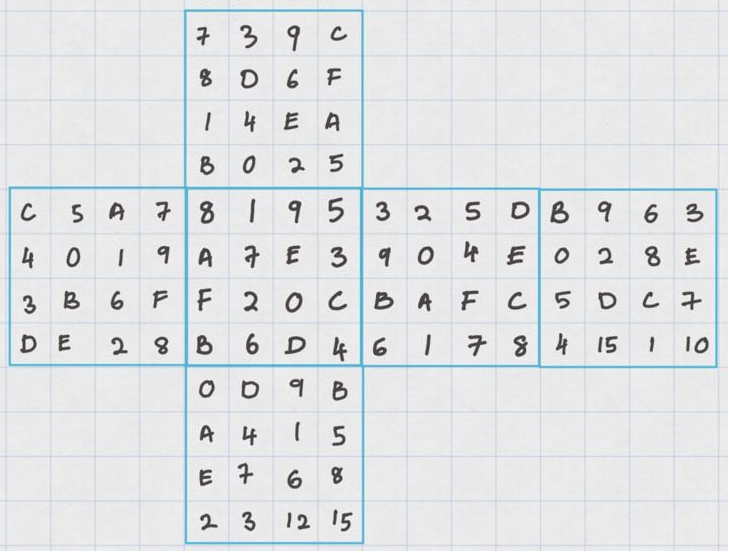 7 3 9 C
8 D 6 F
1 4 E A
B 0 2 5
C 5 A 7 8 1 9 5 3 2 5 D B 9 6 3
4 0 1 9 A 7 E 3 9 0 4 E 0 2 8 E
3 B 6 F F 2 0 C B A F C 5 D C 7
D E 2 8 B 6 D 4 6 1 7 8 4 15 1 10
0 D 9 B
A 4 1 5
E 7 6 8
2 3 12 15